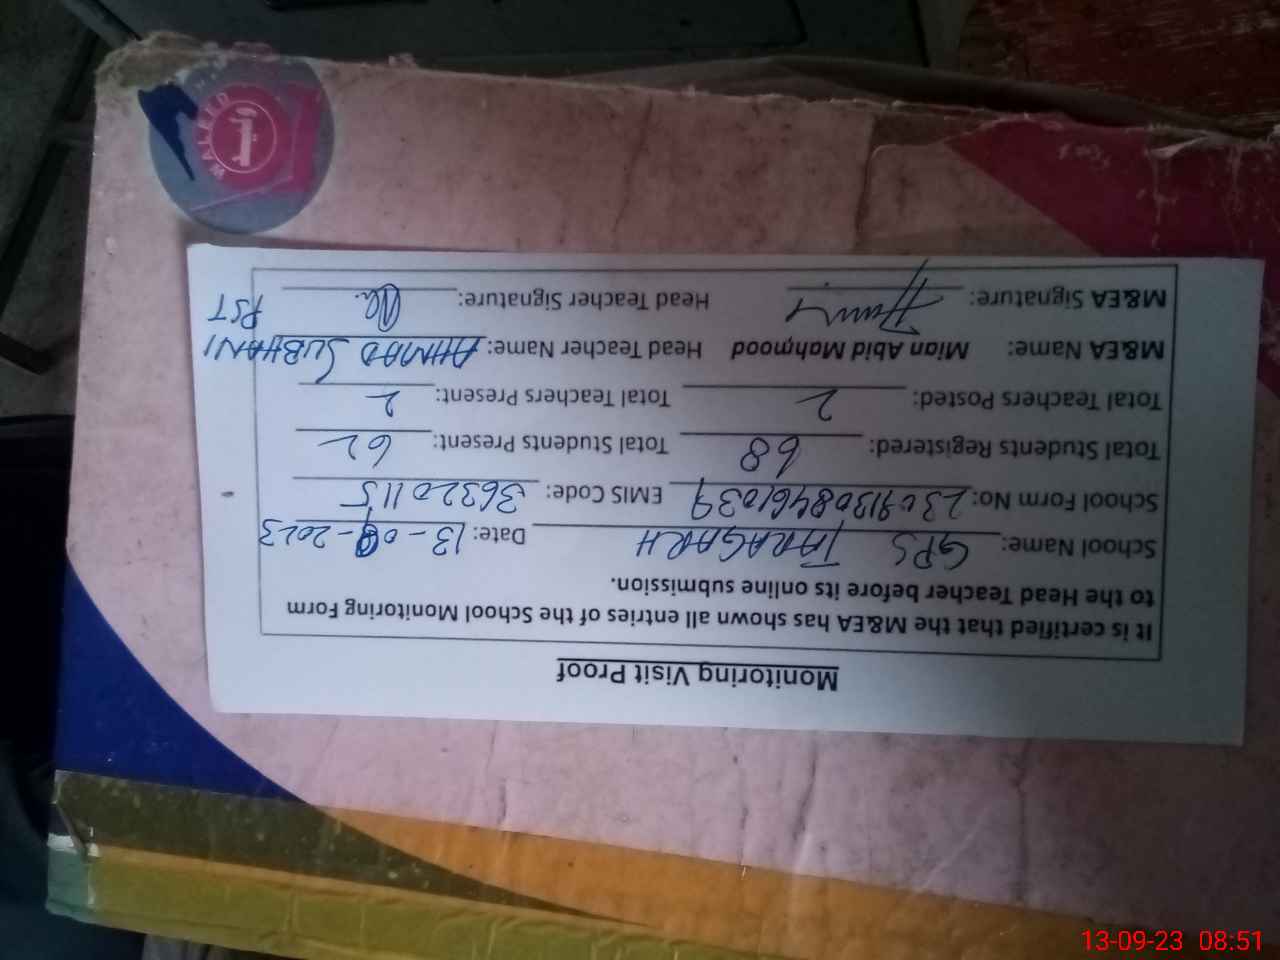 Monitoring Visit Proof
It is certified that the M&EA has shown all entries of the School Monitoring Form
to the Head Teacher before its online submission.
School Name: GPS TARAGARH Date: 13-09-2023
School Form No: 23091308461039 EMIS Code: 36320115
Total Students Registered: 68 Total Students Present: 62
Total Teachers Posted: 2 Total Teachers Present: 2
M&EA Name: Mian Abid Mahmood Head Teacher Name: AHMAD SUBHANI
M&EA Signature: Head Teacher Signature: PST
WALEED
13-09-23 08:51